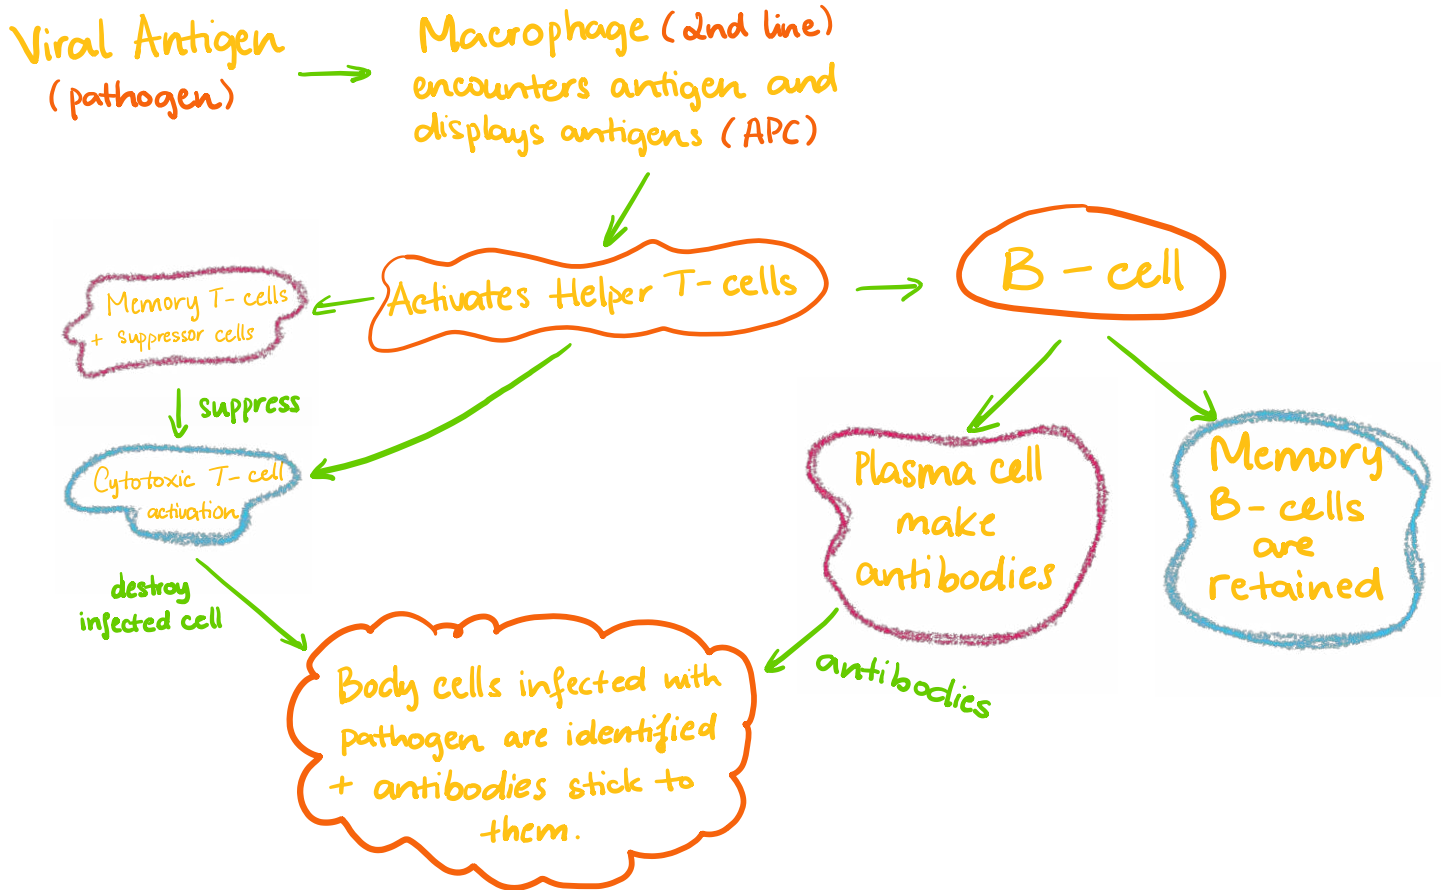 Viral Antigen
(pathogen)
Macrophage (2nd line)
encounters antigen and
displays antigens (APC)
Activates Helper T-cells
B-cell
Memory T-cells
+ suppressor cells
suppress
Cytotoxic T-cell
activation
destroy
infected cell
Plasma cell
make
antibodies
Memory
B-cells
are
retained
antibodies
Body cells infected with
pathogen are identified
+ antibodies stick to
them.